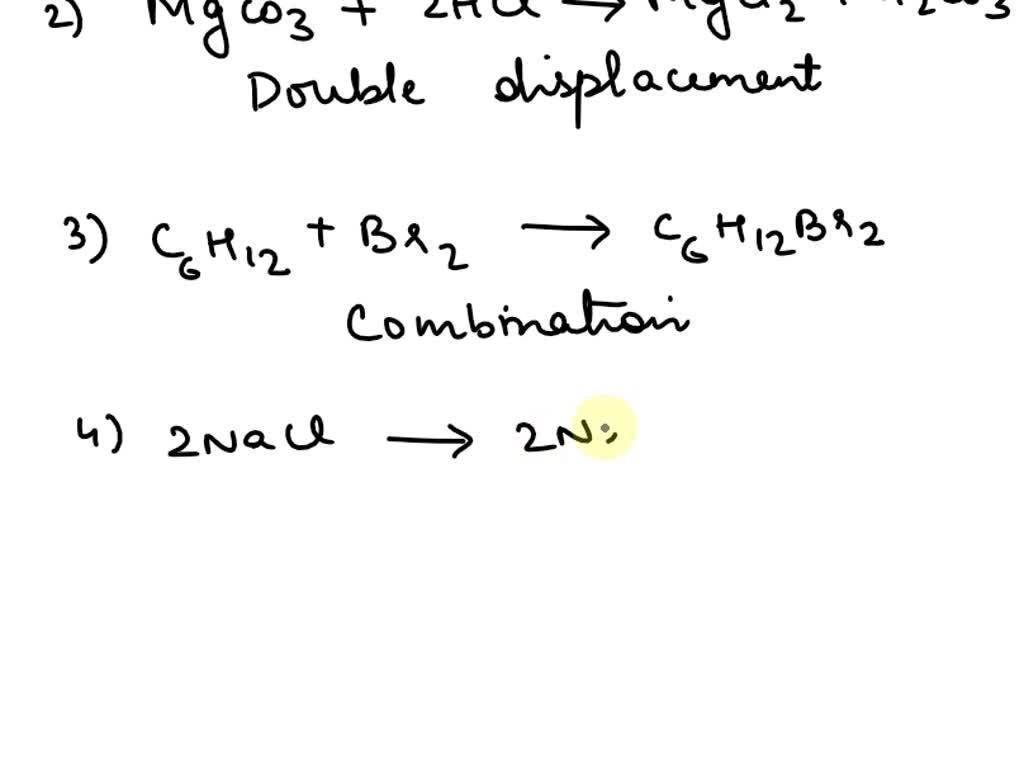 2) MgCO3 + 2HCl → MgCl2 + H2CO3
Double displacement
3) C6H12 + Br2 → C6H12Br2
Combination
4) 2NaCl → 2N